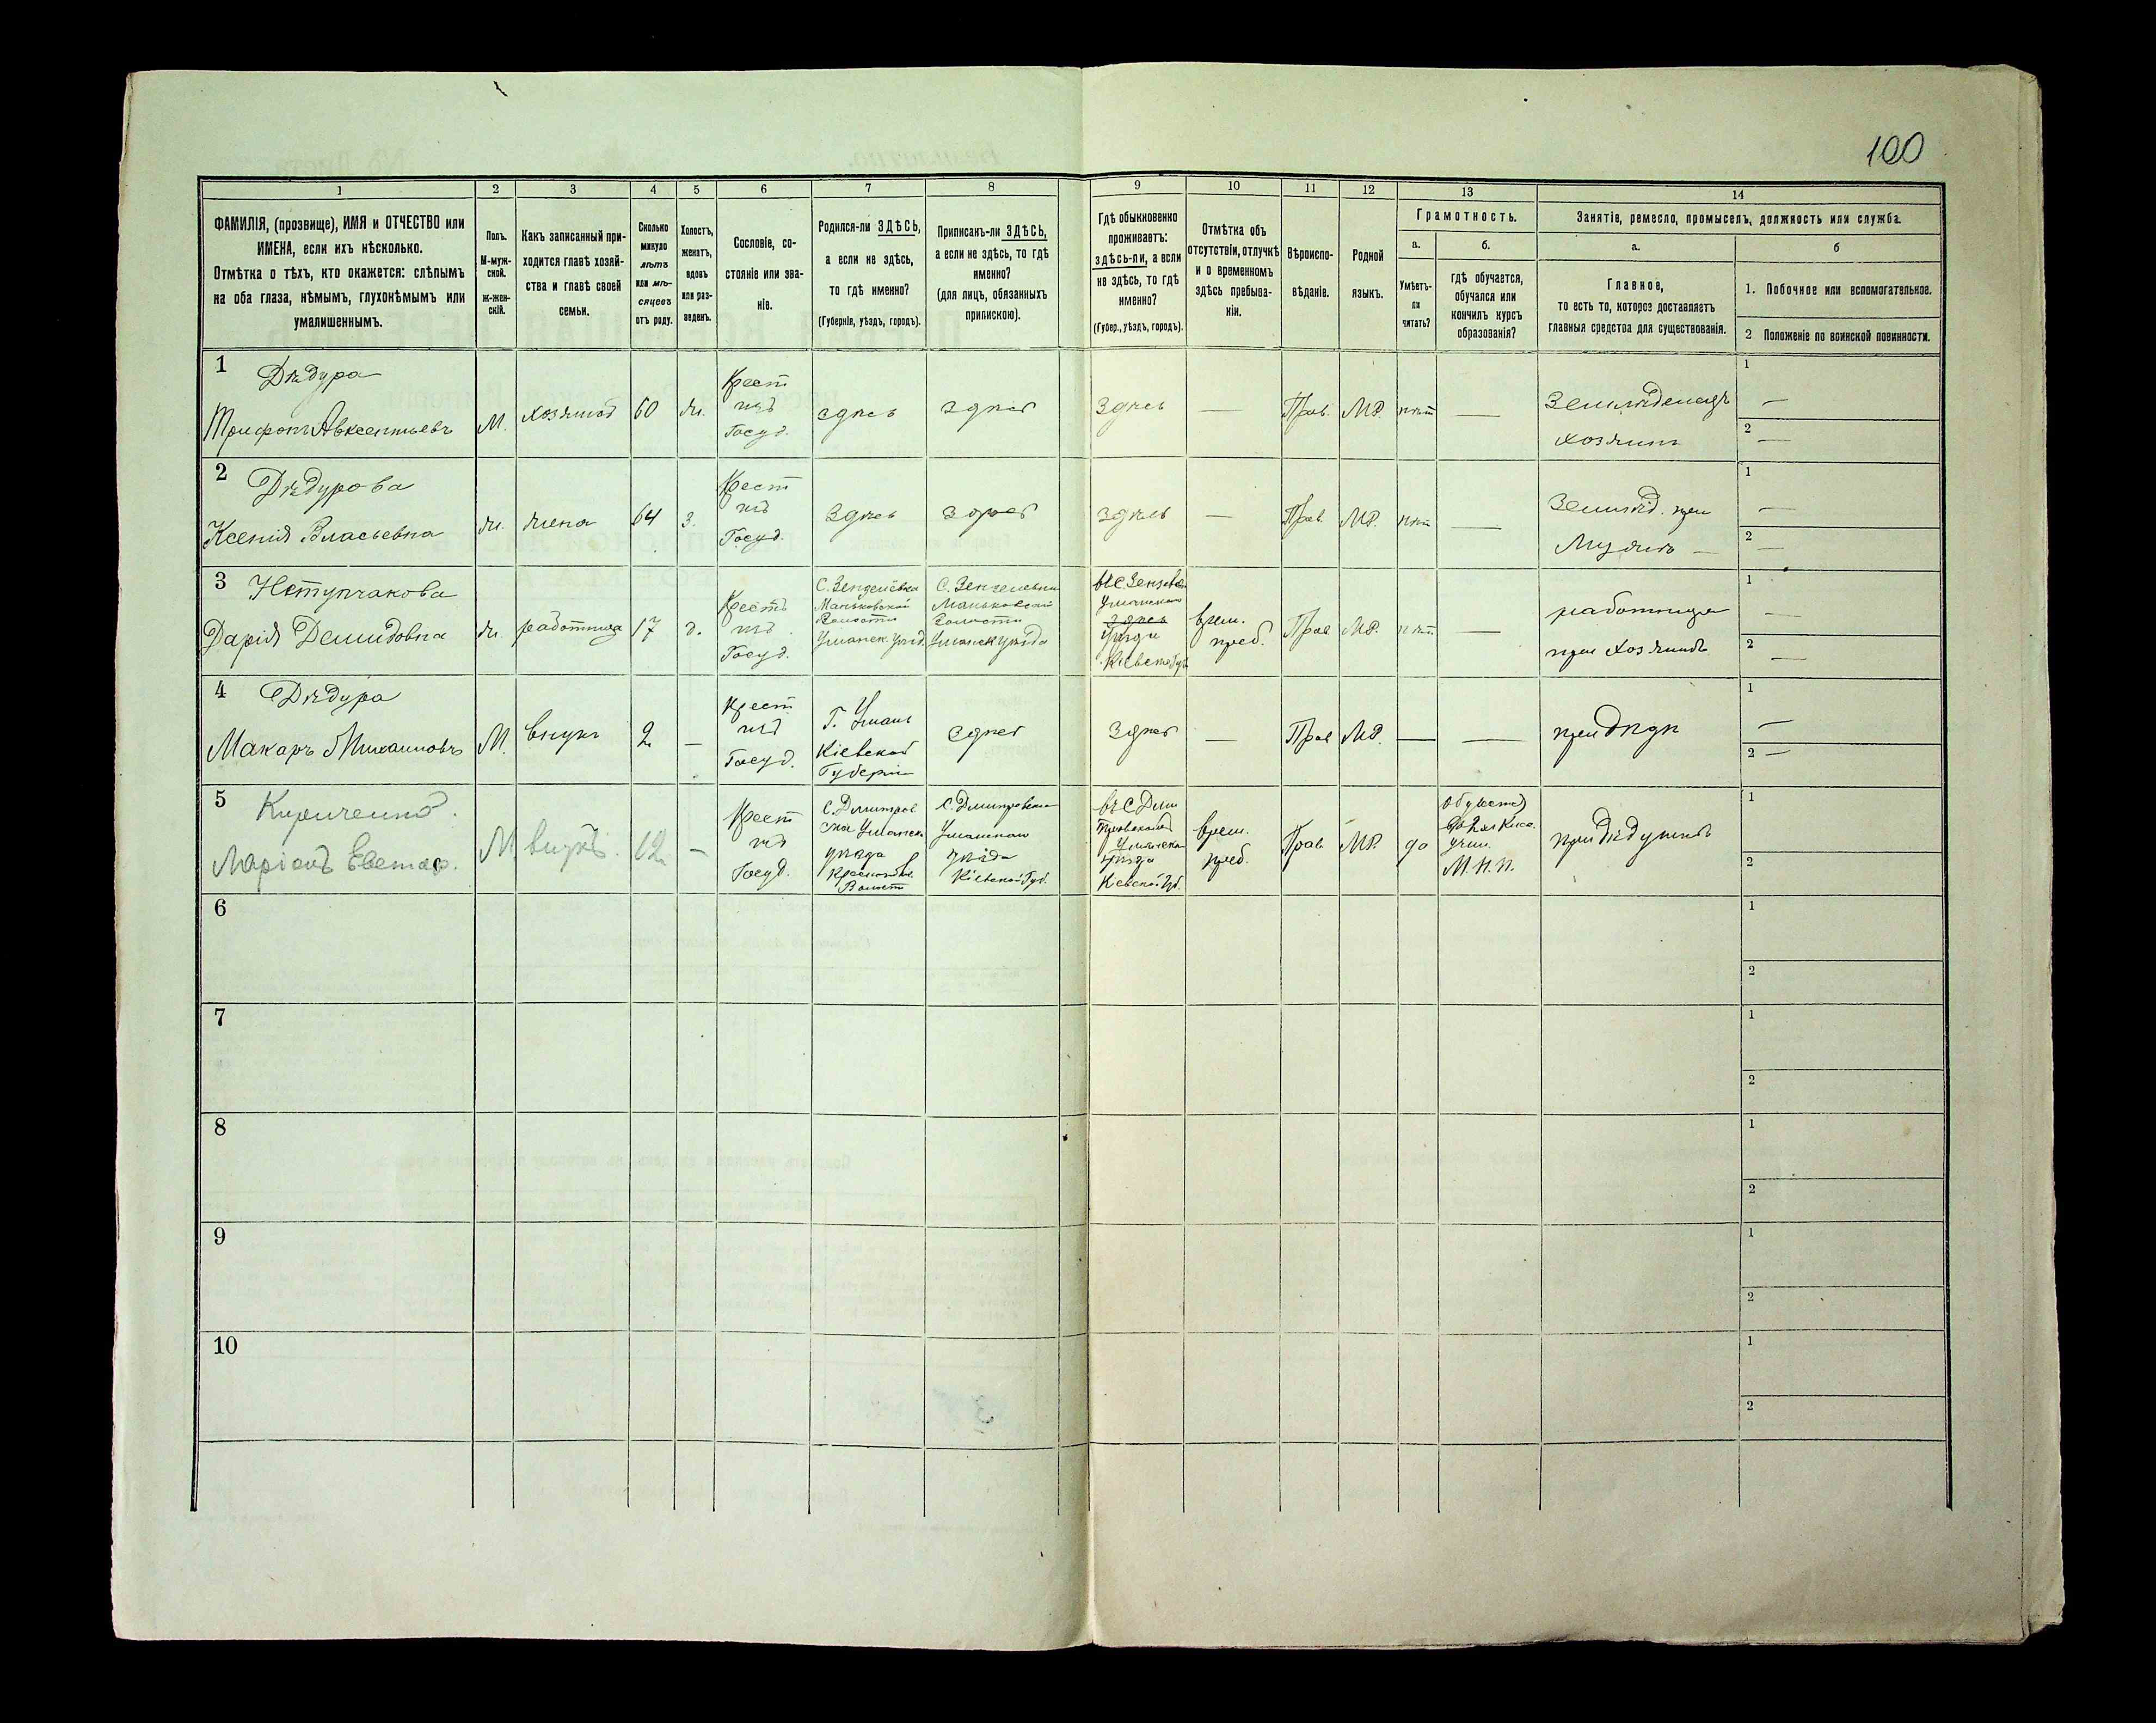 100
1
2
3
4
5
6
7
8
9
10
11
12
13
14
ФАМИЛІЯ, (прозвище), ИМЯ и ОТЧЕСТВО или
ИМЕНА, если ихъ нѣсколько.
Отмѣтка о тѣхъ, кто окажется: слѣпымъ
на оба глаза, нѣмымъ, глухонѣмымъ или
умалишеннымъ.
Полъ.
М-муж-
ской.
ж-жен-
скій.
Какъ записанный при-
ходится главѣ хозяй-
ства и главѣ своей
семьи.
Сколько
минуло
лѣтъ
или мѣ-
сяцевъ
отъ роду.
Холостъ,
женатъ,
вдовъ
или раз-
веденъ.
Сословіе, со-
стояніе или зва-
ніе.
Родился-ли ЗДѢСЬ,
а если не здѣсь,
то гдѣ именно?
(Губернія, уѣздъ, городъ).
Приписанъ-ли ЗДѢСЬ,
а если не здѣсь, то гдѣ
именно?
(для лицъ, обязанныхъ
припискою).
Гдѣ обыкновенно
проживаетъ:
здѣсь-ли, а если
не здѣсь, то гдѣ
именно?
(Губер., уѣздъ, городъ).
Отмѣтка объ
отсутствіи, отлучкѣ
и о временномъ
здѣсь пребыва-
ніи.
Вѣроиспо-
вѣданіе.
Родной
языкъ.
Грамотность.
а.
Умѣетъ-
ли
читать?
б.
гдѣ обучается,
обучался или
кончилъ курсъ
образованія?
Занятіе, ремесло, промыселъ, должность или служба.
а.
Главное,
то есть то, которое доставляетъ
главныя средства для существованія.
б
1. Побочное или вспомогательное.
2 Положеніе по воинской повинности.
1
Дѣдура
Трифонъ Авксентьевъ
М.
хозяинъ
60
ж.
Крест
изъ
Госуд.
здѣсь
здѣсь
здѣсь
—
Прав.
МР.
нѣт
—
Земледелецъ
хозяинъ
1
—
2
—
2
Дѣдурова
Ксенія Власьевна
ж.
жена
64
з.
Крест
изъ
Госуд.
Здѣсь
Здѣсь
здѣсь
—
Прав.
МР.
нѣт
—
Землѣд. при
Мужѣ —
1
—
2
—
3
Дарія Демидовна
ж.
работница
17
д.
Крест
изъ
Госуд.
Маньковской
Волости
Уманск. уѣзд.
Маньковской
Волости
Уманск уѣзда
Уманскаго
здѣсь
уѣзда
Кіевской Губ
врем.
преб.
Прав
МР.
нѣт.
—
работница
при хозяинѣ
1
—
2
—
4
Дѣдура
Макаръ Михаиловъ
М.
внукъ
2
—
Крест
изъ
Госуд.
Г. Умань
Кіевской
Губерніи
здѣсь
Здѣсь
—
Прав
МР.
—
—
при Дѣдѣ
1
—
2
—
5
Кириченко.
Маріонъ Евстаф.
М
внукъ.
12
—
Крест
изъ
Госуд.
С. Дмитров
ска Уманск
уѣзда
Волост
С. Дмитровки
Уманскаго
уѣзда
Кіевской Губ.
въ С Дми
тровской
Уманска
уѣзда
Кіевской Губ.
врем.
преб.
Прав
МР.
да
учил.
М.Н.П.
при Дѣдушкѣ
1
2
6
1
2
7
1
2
8
1
2
9
1
2
10
1
2